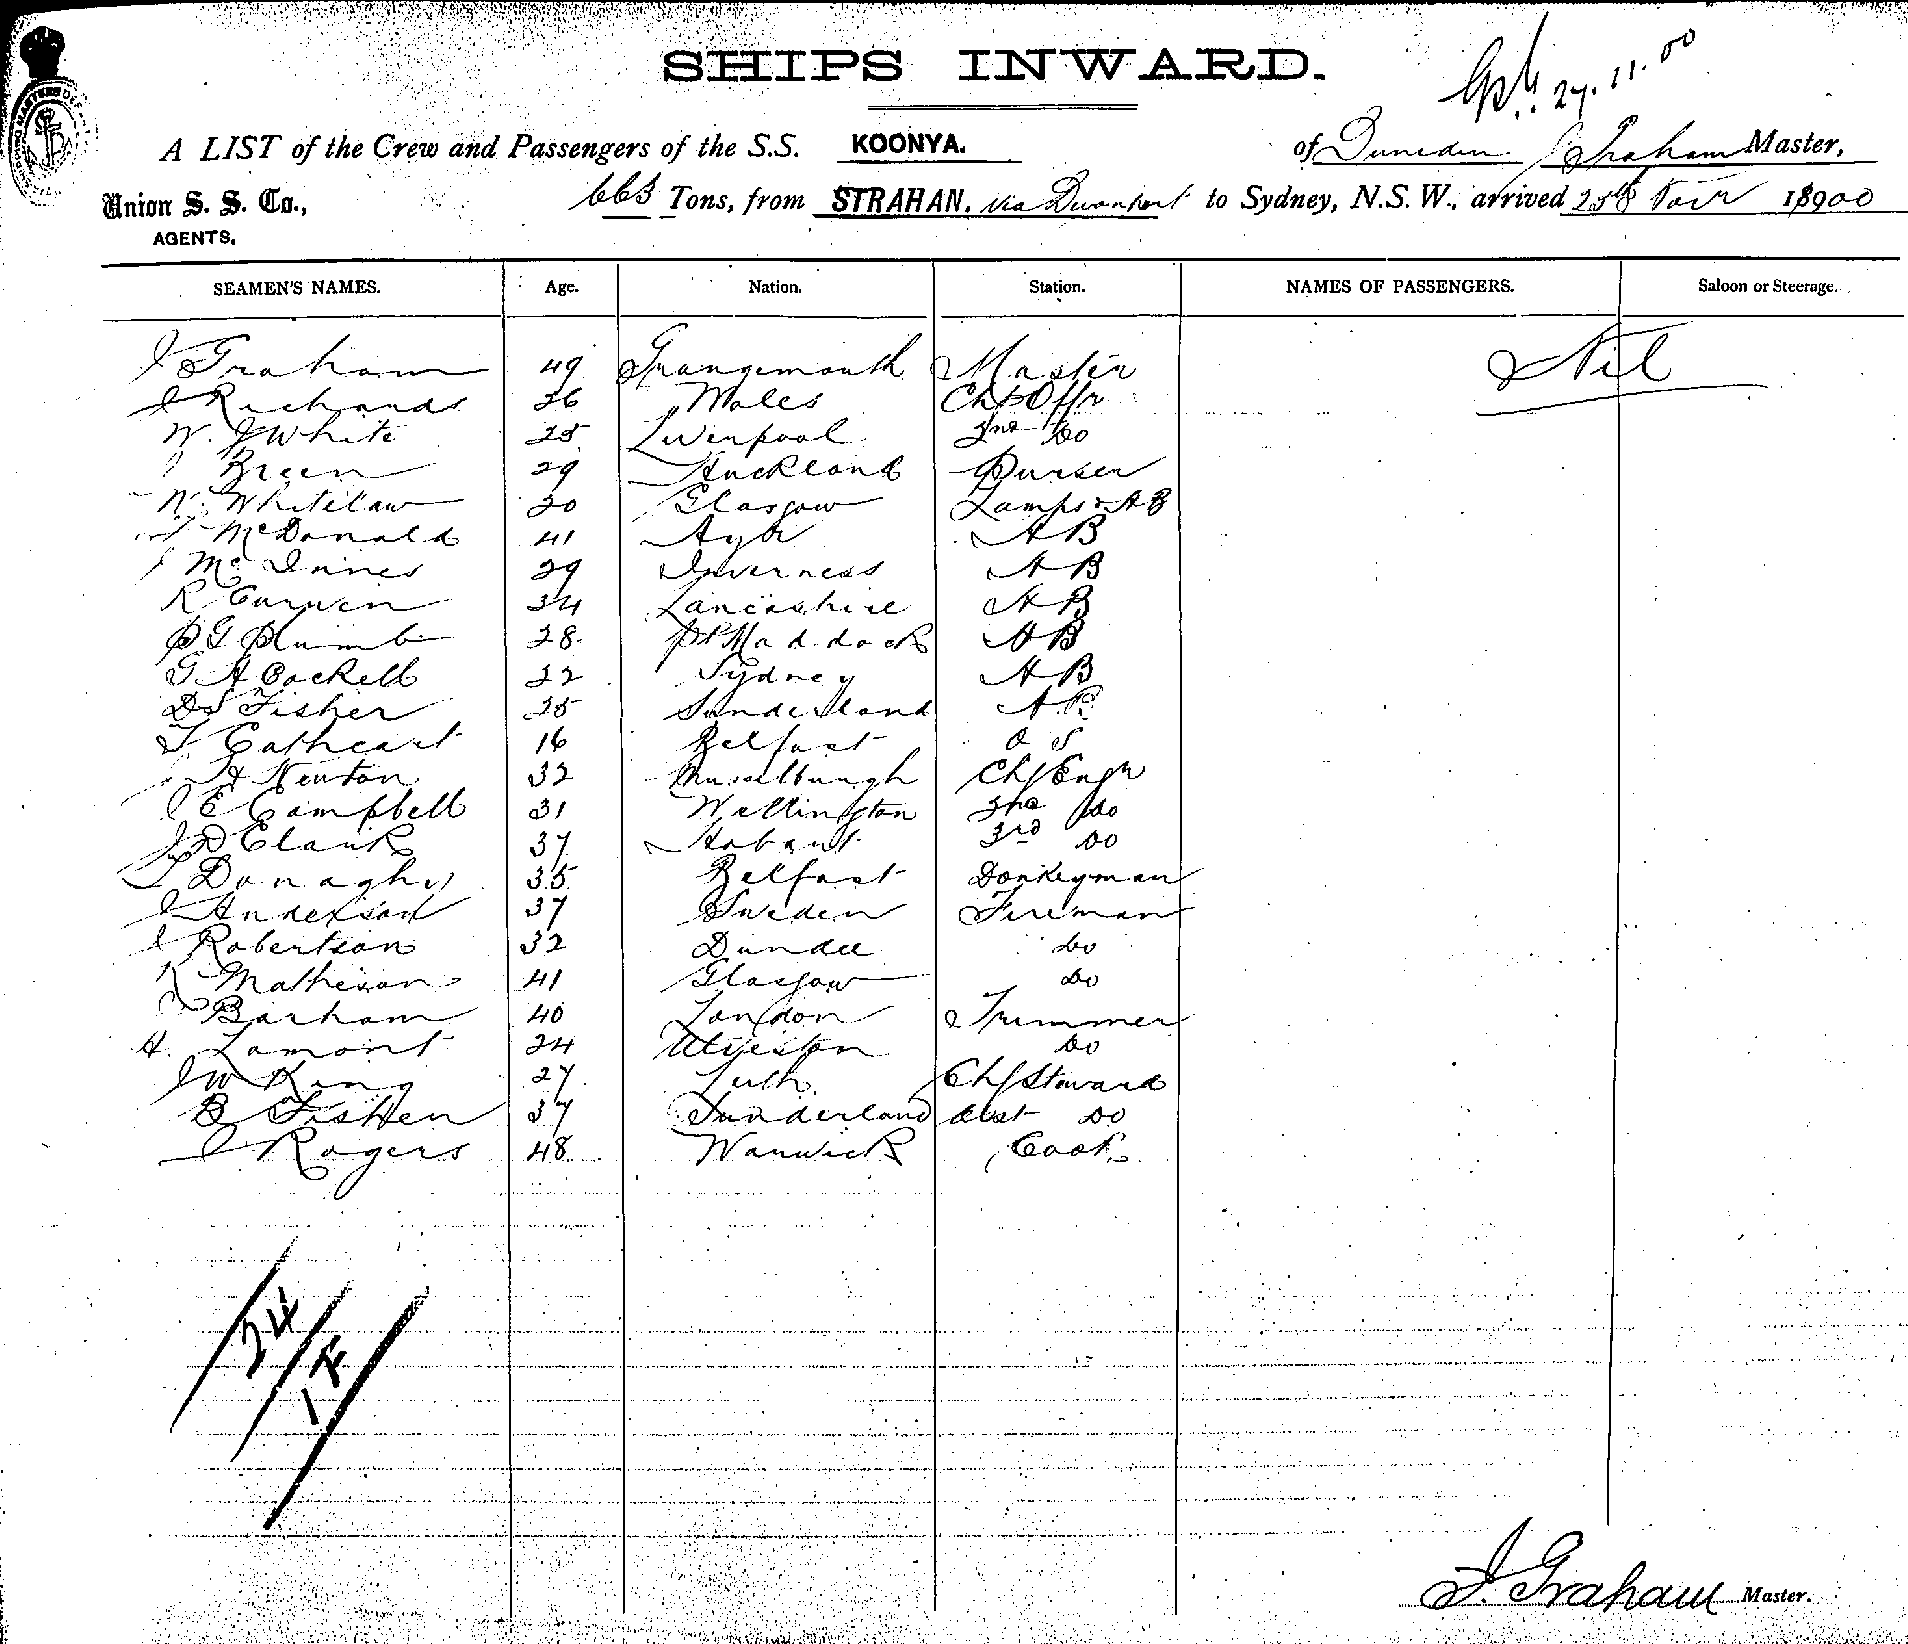 SHIPS INWARD.
27.11.00
A LIST of the Crew and Passengers of the S.S. KOONYA. of Dunedin J Graham Master,
Union S. S. Co., 663 Tons, from STRAHAN. via Devonport to Sydney, N.S.W., arrived 25th Novr 1900
AGENTS.
SEAMEN'S NAMES. Age. Nation. Station. NAMES OF PASSENGERS. Saloon or Steerage.
J Graham 49 Grangemouth Master Nil
J Richards 36 Wales Chf Offr
W. J White 25 Liverpool 2nd Do
J Breen 29 Auckland Purser
W. Whitelaw 20 Glasgow Lamps & AB
McDonald 41 Ayr AB
J McInnes 29 Inverness AB
R Curwen 34 Lancashire AB
P G Plumb 28 Pt Maddock AB
G A Cockell 22 Sydney AB
D S Fisher 25 Sunderland AB
T Cathcart 16 Belfast O S
A Newton 32 Musselburgh Chf Engr
J E Campbell 31 Wellington 2nd Do
J D Clark 37 Hobart 3rd Do
T Donaghy 35 Belfast Donkeyman
J Anderson 37 Sweden Fireman
J Robertson 32 Dundee Do
K Matheson 41 Glasgow Do
Barham 40 London Trimmer
A. Lamont 24 Ulveston Do
J W King 27 Leith Chf Steward
B Fisher 37 Sunderland Asst Do
J Rogers 48 Warwick Cook
24
J. Graham Master.